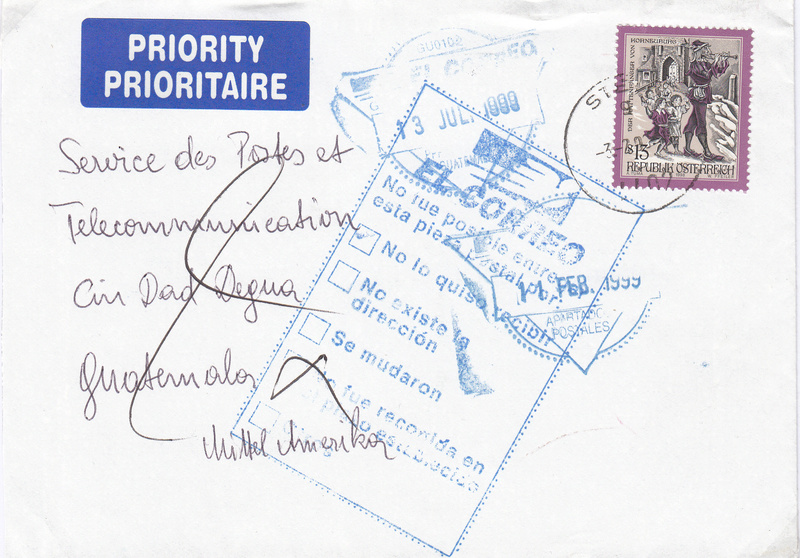 PRIORITY
PRIORITAIRE
Service des Postes et
Telecommunication
Ciu Dad Degua
Guatemala
Mittel Amerika
GU0102
EL CORREO
3 JUL 1999
GUATEMALA
EL CORREO
No fue posible entre
esta pieza postal por:
No lo quiso recibir
No existe la
dirección
Se mudaron
No fue recogida en
el plazo establecido
11 FEB. 1999
APARTADO
POSTALES
DER RATTENFÄNGER VON
KORNEUBURG
S13
REPUBLIK ÖSTERREICH